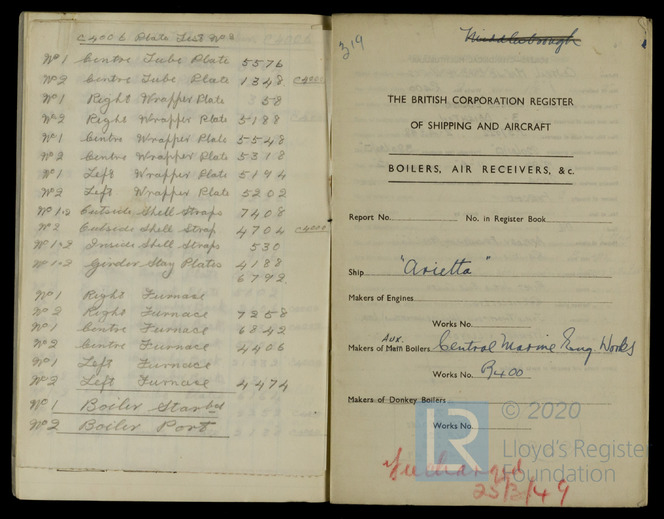 C4006 Plate List Nº 2
Nº 1 Centre Tube Plate 5576
Nº 2 Centre Tube Plate 1348 C4000
Nº 1 Right Wrapper Plate 58
Nº 2 Right Wrapper Plate 5188
Nº 1 Centre Wrapper Plate 5548
Nº 2 Centre Wrapper Plate 5318
Nº 1 Left Wrapper Plate 5194
Nº 2 Left Wrapper Plate 5202
Nº 1-2 Outside Shell Straps 7408
Nº 2 Outside Shell Strap 4704 C4000
Nº 1-2 Inside Shell Straps 530
Nº 1-2 Girder Stay Plates 4188
6792
Nº 1 Right Furnace
Nº 2 Right Furnace 7258
Nº 1 Centre Furnace 6842
Nº 2 Centre Furnace 4406
Nº 1 Left Furnace
Nº 2 Left Furnace 4474
Nº 1 Boiler Starbd
Nº 2 Boiler Port
319
Middlesbrough
THE BRITISH CORPORATION REGISTER
OF SHIPPING AND AIRCRAFT
BOILERS, AIR RECEIVERS, &c.
Report No. No. in Register Book
Ship "Arietta"
Makers of Engines
Works No.
Aux.
Makers of Main Boilers Central Marine Eng Works
Works No. B400
Makers of Donkey Boilers
Works No.
© 2020
LR
Lloyd's Register
Foundation
25/3/49